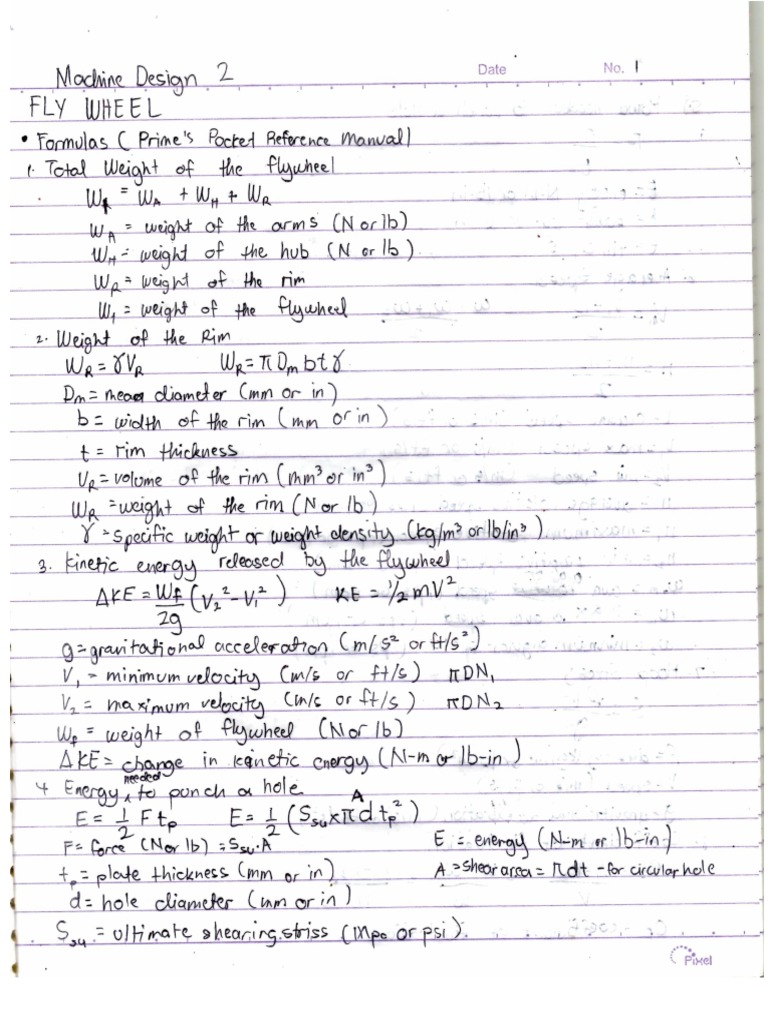 Machine Design 2
Date No. 1
FLY WHEEL
• Formulas ( Prime's Pocket Reference Manual)
1. Total Weight of the flywheel
Wf = WA + WH + WR
WA = weight of the arms (N or lb)
WH = weight of the hub (N or lb)
WR = weight of the rim
Wf = weight of the flywheel
2. Weight of the Rim
WR = γVR WR = πDm b t γ
Dm = mean diameter (mm or in)
b = width of the rim (mm or in)
t = rim thickness
VR = volume of the rim (mm³ or in³)
WR = weight of the rim (N or lb)
γ = specific weight or weight density (kg/m³ or lb/in³)
3. Kinetic energy released by the flywheel
ΔKE = Wf/2g (V₂² - V₁²) KE = 1/2 mV²
g = gravitational acceleration (m/s² or ft/s²)
V₁ = minimum velocity (m/s or ft/s) πDN₁
V₂ = maximum velocity (m/s or ft/s) πDN₂
Wf = weight of flywheel (N or lb)
ΔKE = change in kinetic energy (N-m or lb-in)
4 Energy needed to punch a hole
E = 1/2 F tp E = 1/2 (Ssu x πd tp²) A
F = force (N or lb) = Ssu·A E = energy (N-m or lb-in)
tp = plate thickness (mm or in) A = shear area = πdt - for circular hole
d = hole diameter (mm or in)
Ssu = ultimate shearing striss (Mpa or psi)
Pixel